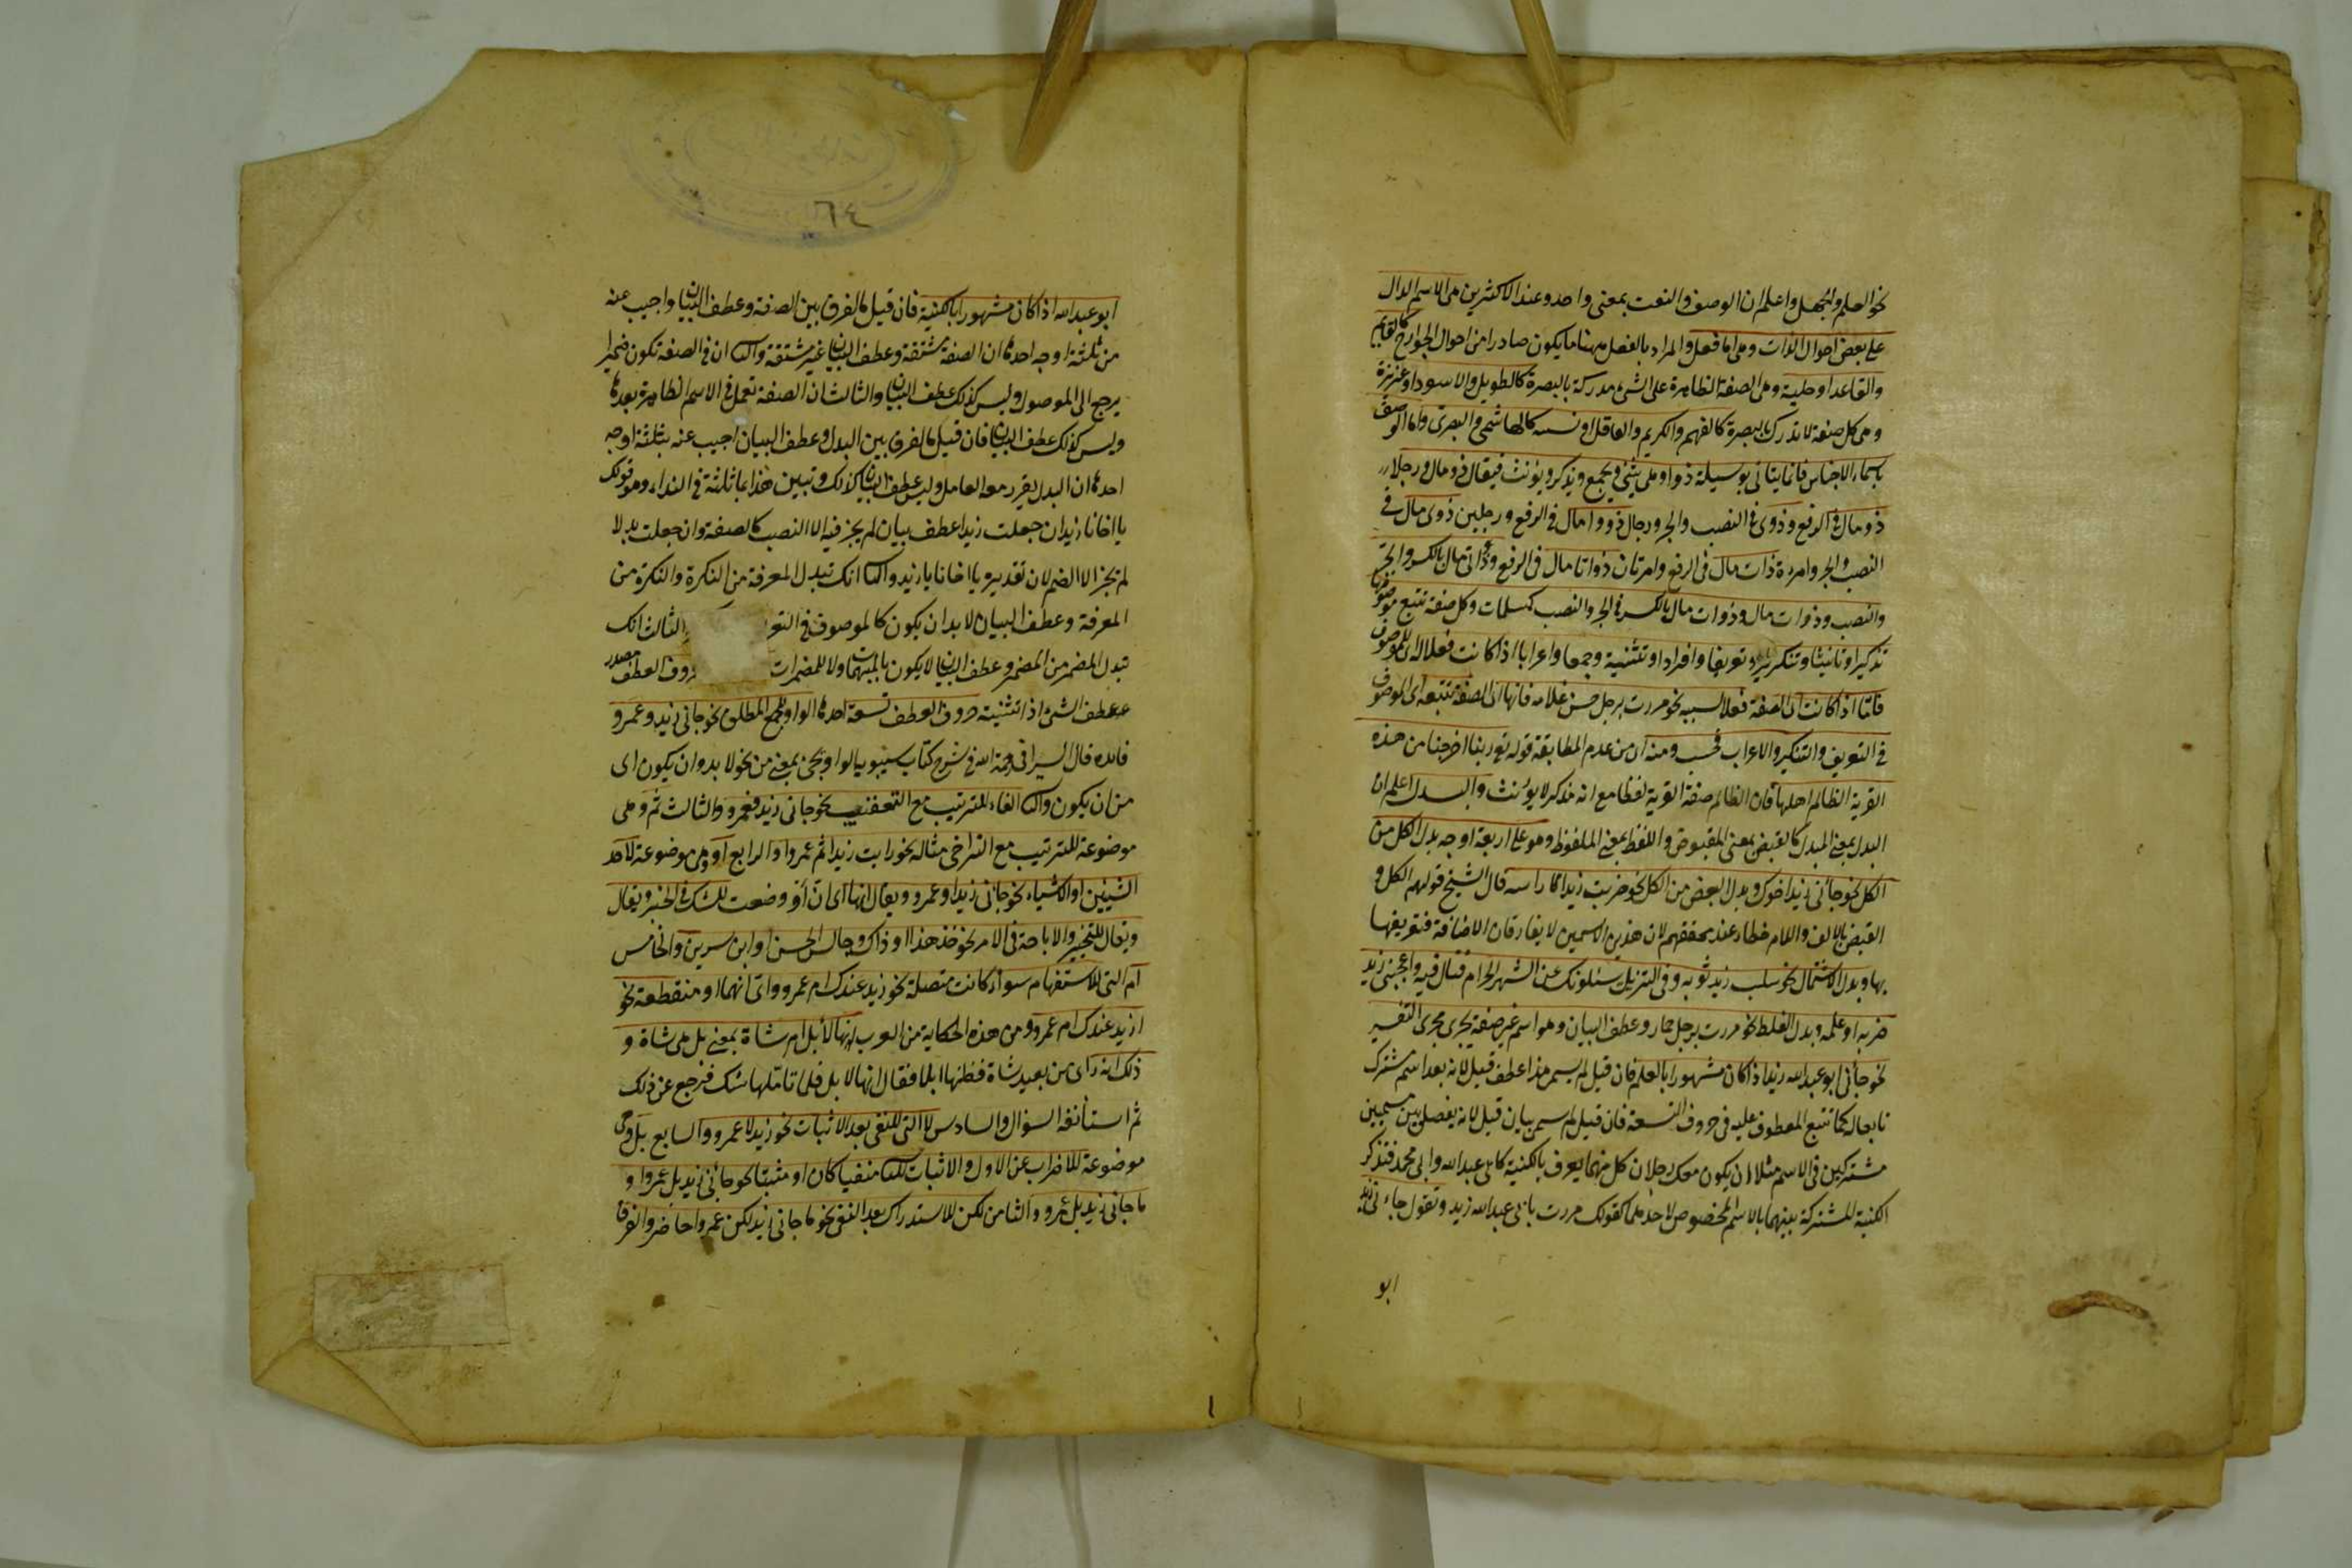 نحو العلم والجهل واعلم ان الوصف والنعت بمعنى واحد وعند الاكثرين هي الاسم الدال
على بعض احوال الذات وهي اما فعل والمراد بالفعل ههنا ما يكون صادرا من احوال الجوارح كالقايم
والقاعد او حلية وهي الصفة الظاهرة على الشئ مدركة بالبصرة كالطويل والاسود او غريزة
وهي كل صفة لا تدرك بالبصرة كالفهم والكريم والعاقل او نسبه كالهاشمي والبصري واما الوصف
باسماء الاجناس فانما يتاتى بوسيلة ذو او هي يثنى ويجمع ويذكر ويؤنث فيقال ذو مال ورجلا
ذو مال في الرفع وذوى في النصب والجر ورجال ذووا مال في الرفع ورجلين ذوى مال في
النصب والجر وامرءة ذات مال في الرفع وامرتان ذواتا مال في الرفع وذواتى مال بالكسر والجر
والنصب وذوات مال وذوات مال بالكسر في الجر والنصب كمسلمات وكل صفة تتبع موصوفها
تذكيرا وتانيثا وتنكيرا وتعريفا وافرادا وتثنية وجمعا واعرابا اذا كانت فعلا له اى للموصوف
فاما اذا كانت اى الصفة فعلا لسببه نحو مررت برجل حسن غلامه فانها اى الصفة تتبعه اى الموصوف
في التعريف والتنكير والاعراب فحسب ومنه اى من عدم المطابقة قوله تع ربنا اخرجنا من هذه
القرية الظالم اهلها فان الظالم صفة القرية لفظا مع انه مذكر لا يؤنث والبدل اعلم ان
البدل بمعنى المبدل كالقبض بمعنى المقبوض واللفظ بمعنى الملفوظ وهو على اربعة اوجه بدل الكل من
الكل نحو جائنى زيد اخوك وبدل البعض من الكل نحو ضربت زيدا راسه قال الشيخ قولهم الكل و
القبض بالالف واللام خطاء عند محققهم لان هذين الاسمين لا يفارقان الاضافة فتعريفها
بها وبدل الاشتمال نحو سلب زيد ثوبه وفي التنزيل يسئلونك عن الشهر الحرام قتال فيه واعجبنى زيد
ضربه او علمه وبدل الغلط نحو مررت برجل حمار وعطف البيان وهو اسم غير صفة يجرى مجرى التفسير
نحو جائنى ابو عبد الله زيد اذا كان مشهورا بالعلم فان قيل لم يسمى هذا عطف قيل لانه بعد اسم مشترك
تابعا له كما تتبع المعطوف عليه في حروف التسعة فان قيل لم سمى بيان قيل لانه يفصل بين مسميين
مشتركين في الاسم مثلا ان يكون معك رجلان كل منهما يعرف بالكنية كابى عبد الله وابى محمد فتذكر
الكنية المشتركة بينهما بالاسم المخصوص لاحدهما كقولك مررت بابى عبد الله زيد وتقول جاءنى زيد
ابو
٦٤
ابو عبد الله اذا كان مشهورا بالكنية فان قيل ما الفرق بين الصفة وعطف البيان واجيب عنه
من ثلثة اوجه احدها ان الصفة مشتقة وعطف البيان غير مشتقة والثا ان في الصفة تكون ضميرا
يرجع الى الموصوف وليس كذلك عطف البيان والثالث ان الصفة تعمل في الاسم الظاهرة بعدها
وليس كذلك عطف البيان فان قيل ما الفرق بين البدل وعطف البيان اجيب عنه بثلثة اوجه
احدها ان البدل يقرر معه العامل وليس عطف البيان كذلك وتبين هذا بثلثة في النداء وهو قولك
يا اخانا زيد ان جعلت زيدا عطف بيان لم يجز فيه الا النصب كالصفة وان جعلت بدلا
لم تجز الا الضم لان تقديره يا اخانا يا زيد والثا انك تبدل المعرفة من النكرة والنكرة من
المعرفة وعطف البيان لا بد ان يكون كالموصوف في التعر والثالث انك
تبدل المضمر من المضمر وعطف البيان لا يكون بالمبهمات ولا للمضمرات روف العطف مصدر
عطف الشئ اذا تثنيته حروف العطف تسعة احدها الواو للجمع المطلق نحو جانى زيد وعمرو
فائده قال السيرافى رحمة الله في شرح كتاب سيبويه الواو يجئ بمعنى من نحو لا بد وان يكون اى
من ان يكون والثا الفاء للترتيب مع التعقيب نحو جانى زيد فعمرو والثالث ثم وهي
موضوعة للترتيب مع التراخى مثاله نحو رايت زيدا ثم عمروا والرابع او وهي موضوعة لاحد
الشيئين او الاشياء نحو جائنى زيد او عمرو ويقال انها اى ان او وضعت للشك في الخبر ويقال
ويقال للتخيير والاباحة في الامر نحو خذ هذا او ذاك وجالس الحسن او ابن سيرين والخامس
ام التى للاستفهام سواء كانت متصلة نحو زيد عندك ام عمرو واى انهما او منقطعة نحو
ازيد عندك ام عمرو ومن هذه الحكاية من العرب انها لابل ام شاة بمعنى بل هي شاة و
ذلك انه راى من بعيد شاة فظنها ابلا فقال انها لابل فلما تاملها شك فرجع عن ذلك
ثم استأنف السؤال والسادس لا التى للنفى بعد الاثبات نحو زيد لا عمرو والسابع بل وهى
موضوعة للاضراب عن الاول والاثبات للثا منفيا كان او مثبتا نحو جائنى زيد بل عمروا و
ما جانى زيد بل عمرو والثامن لكن للاستدراك بعد النفى نحو ما جانى زيد لكن عمروا حاضر والفرق